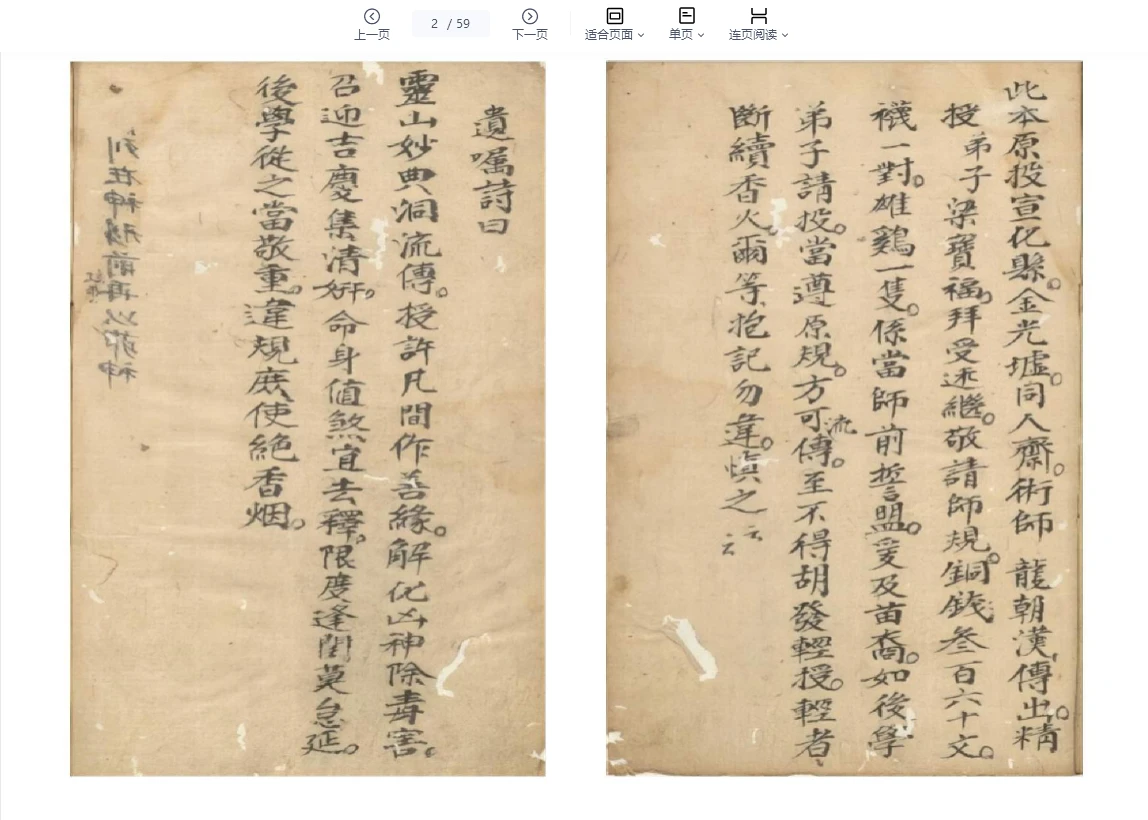 上一页
2 / 59
下一页
适合页面
单页
连页阅读
此本原投宣化縣。金光墟。同人齋。術師 龍朝漢傳出。精
授 弟子梁寶福。拜受还繼。敬請師規。銅錢叁百六十文。
襪一對。雄鷄一隻。係當師前誓盟。爰及苗裔。如後學
弟子請投。當遵原規。方可流傳。至不得胡發輕授。輕者
斷續香火爾等抱記勿違。慎之 云云
遺嘱詩曰
靈山妙典洞流傳。授許凡間作善緣。解化凶神除毒害。
召迎吉慶集清妍。命身值煞宜去釋。限度逢閏莫怠延。
後學從之當敬重。違規庶使絕香烟。